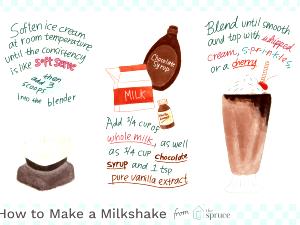 Soften ice cream
at room temperature
until the consistency
is like soft serve
then
add 3
scoops
into the blender
Chocolate
Syrup
MILK
Vanilla
Add 3/4 cup of
whole milk, as well
as 1/4 cup chocolate
syrup and 1 tsp
pure vanilla extract
Blend until smooth
and top with whipped
cream, sprinkles,
or a cherry
How to Make a Milkshake from the spruce